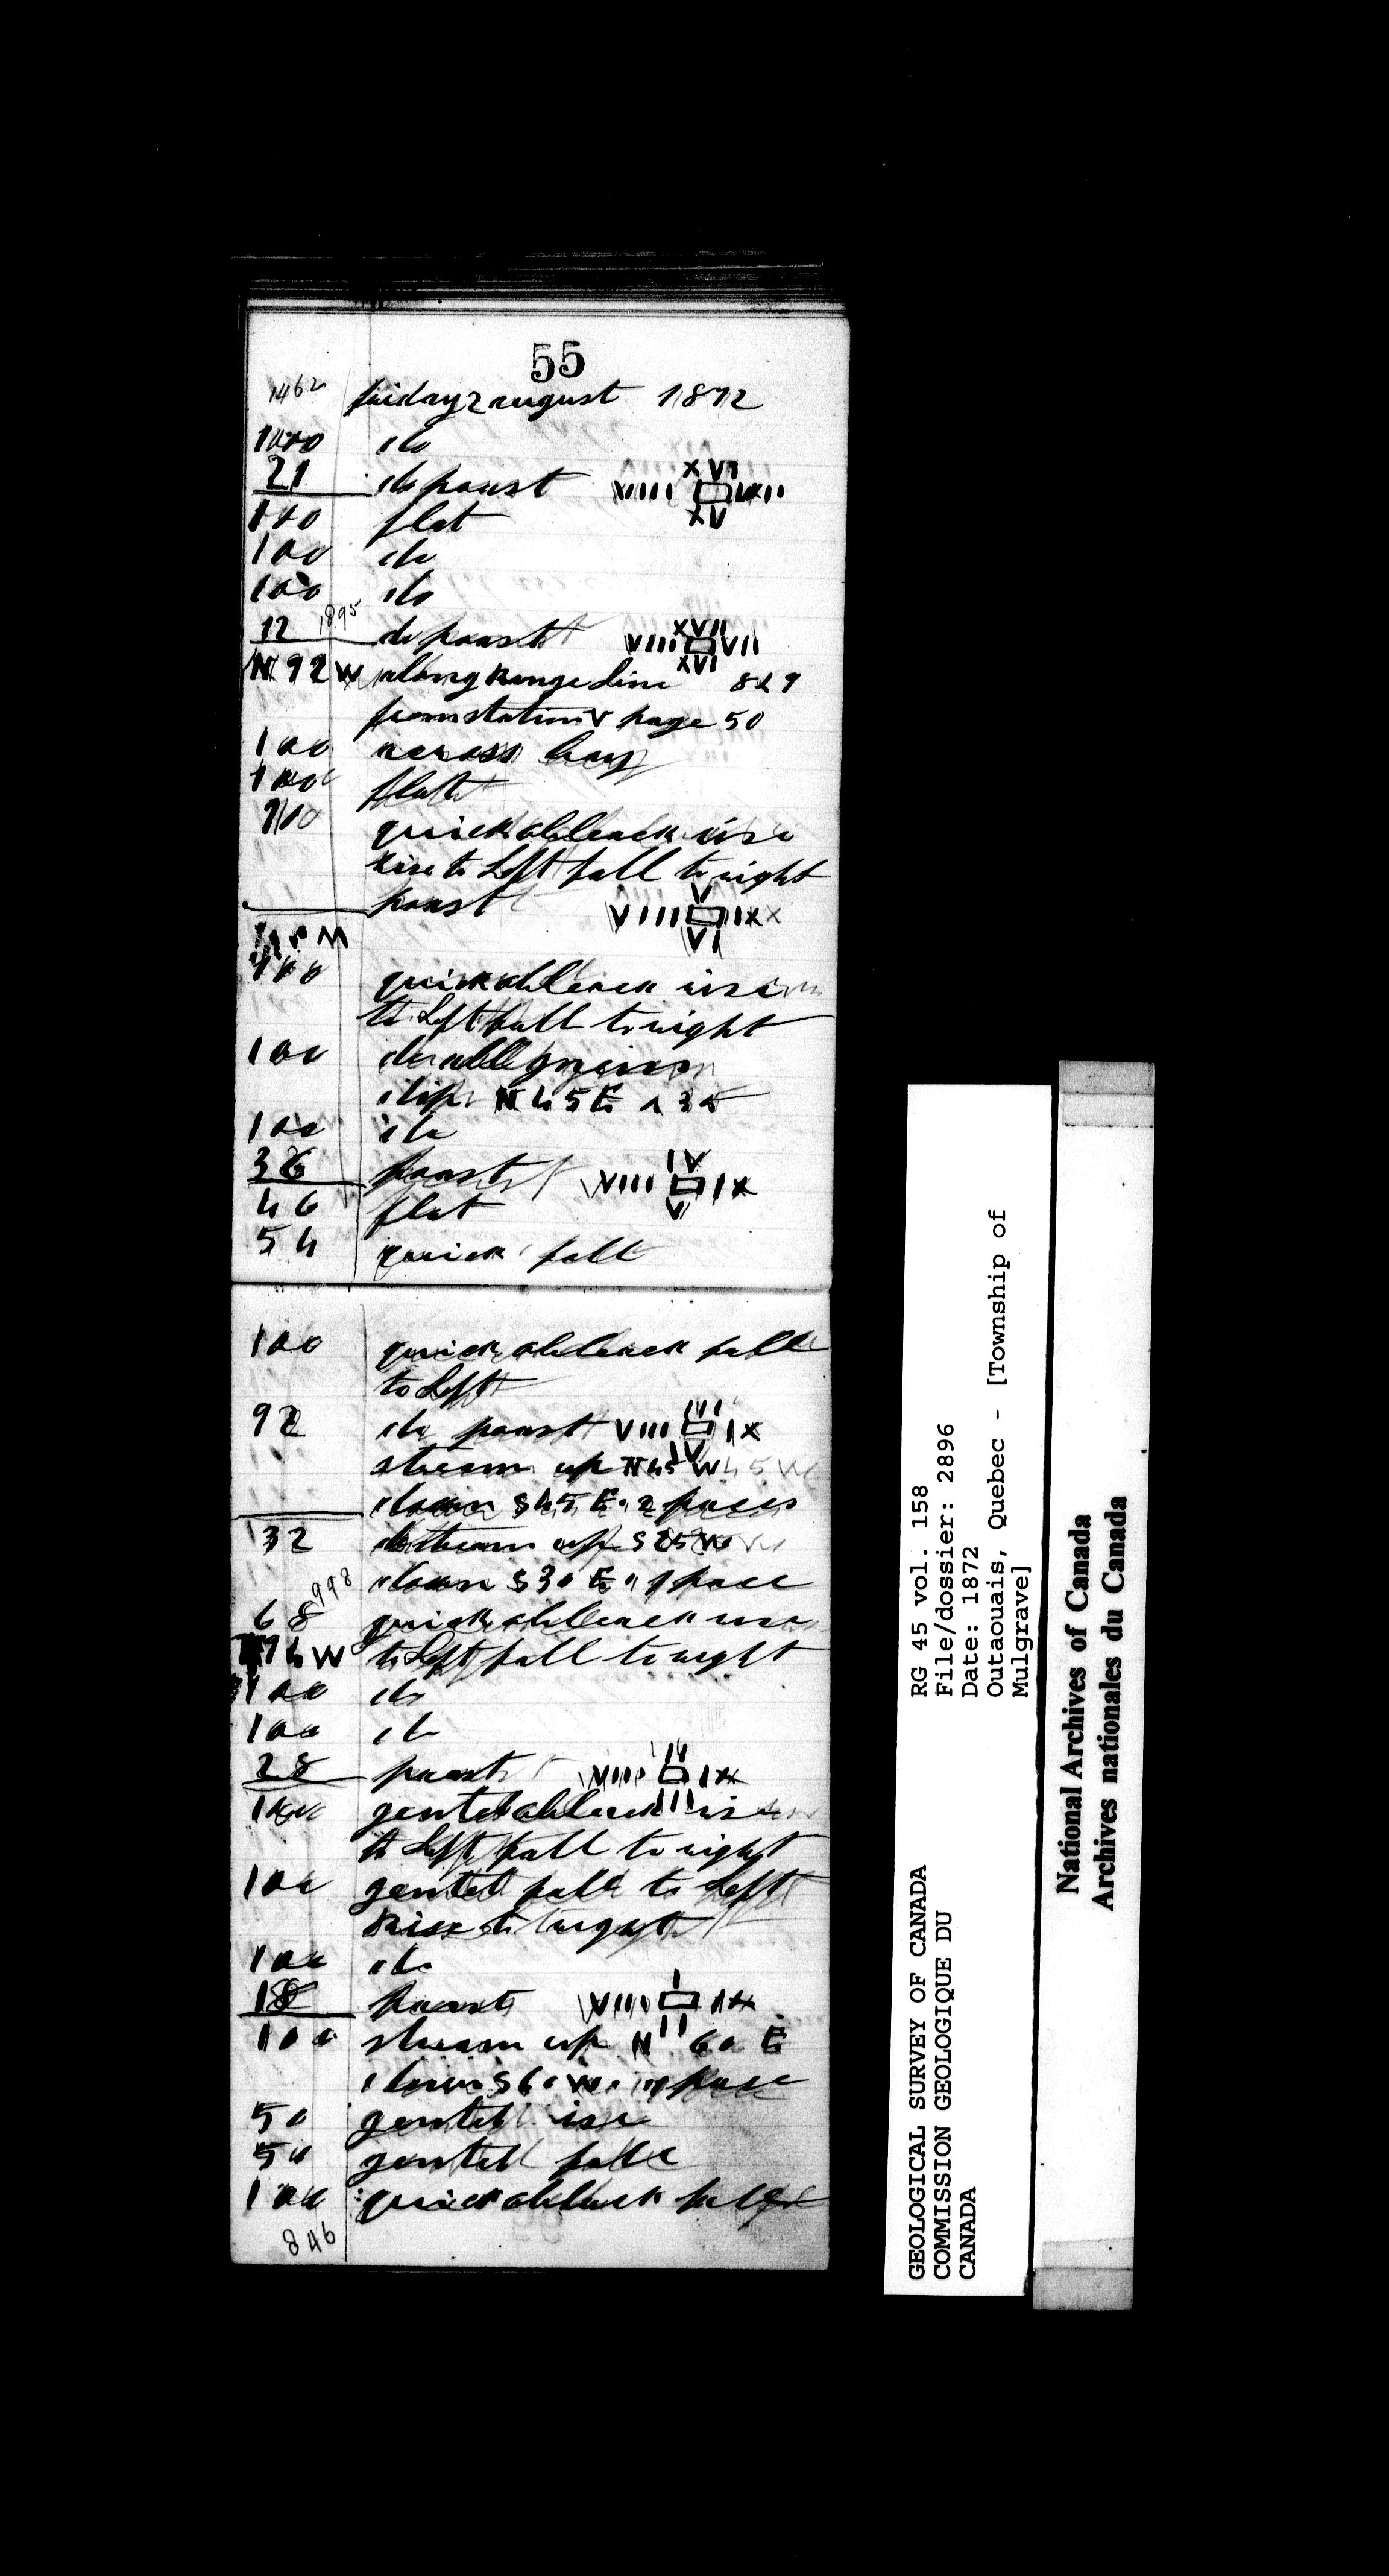 55
1462 friday 2 august 1872
100 do
21 do poust XVI VIIII VIII XV
100 flat
100 do
100 do
12 1895 do poust XVII VIII VII XVI
N 92 W along Range Line 8 & 9
from station V page 50
100 across bay
100 flat
910 quick obleack rise
rise to Left fall to right
poust V VIII IX VI
100 quick obleack rise
to Left fall to right
100 do all gneiss
dip N 45 E
100 do
36 poust IV VIII IX V
46 flat
54 quick fall
100 quick obleack fall
to Left
92 do poust III VIII IX IV
stream up N 45 W
down S 45 E 2 paces
32 do stream up S 25 W
998 down S 30 E 1 pace
68 quick obleack rise
to Left fall to right
100 do
100 do
28 poust II VIII IX III
100 gentel obleack rise
to Left fall to right
100 gentel fall to Left
Rise to right
100 do
18 poust I VIII IX II
100 stream up N 60 E
down S 60 W 1 pace
50 gentel rise
50 gentel fall
100 quick obleack fall
846
RG 45 vol. 158
File/dossier: 2896
Date: 1872
Outaouais, Quebec - [Township of
Mulgrave]
GEOLOGICAL SURVEY OF CANADA
COMMISSION GEOLOGIQUE DU
CANADA
National Archives of Canada
Archives nationales du Canada